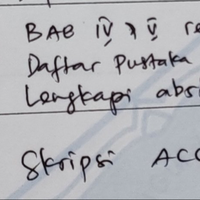 BAB IV, V re
Daftar Pustaka
Lengkapi abs
Skripsi ACC